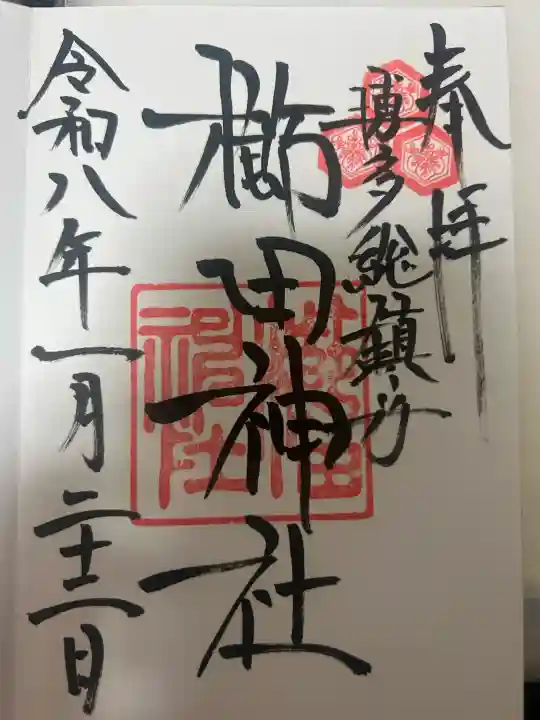 奉拝
博多総鎮守
櫛田神社
櫛田神社
令和八年一月二十二日